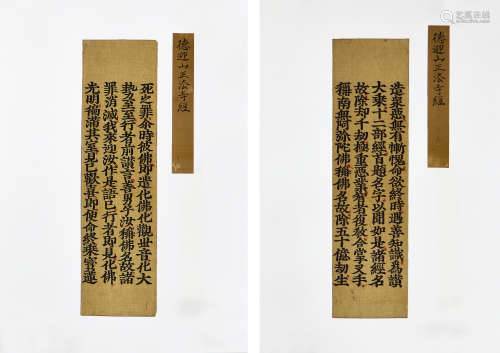 德迎山正法寺經
造衆惡無有慚愧命欲終時遇善知識爲讃
大乗十二部經首題名字以聞如是諸經名
故除却千劫極重惡業智者復教合掌叉手
稱南無阿弥陀佛稱佛名故除五十億劫生
德迎山正法寺經
死之罪尒時彼佛即遣化佛化觀世音化大
勢至至行者前讃言善男子汝稱佛名故諸
罪消滅我來迎汝作是語已行者即見化佛
光明徧滿其室見已歡喜即便命終乗寳蓮